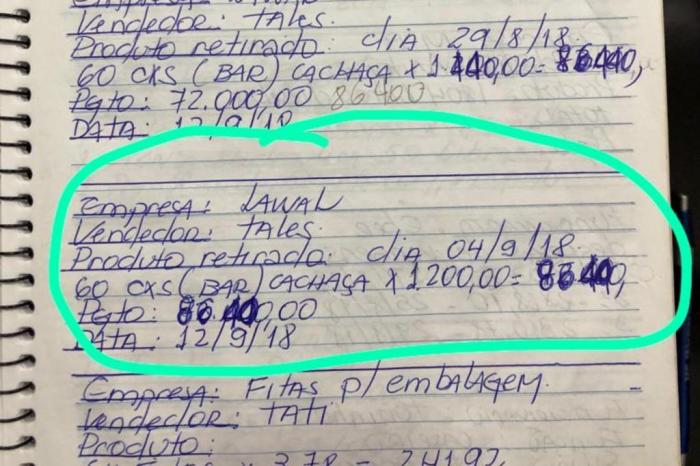 Vendedor: TALES.
Produto retirado: dia 29/8/18.
60 CXS (BAR) CACHAÇA X
Pgto: 72.000,00 86400
DATA: 12/9/18
Empresa: LAWAL
Vendedor: TALES.
Produto retirado: dia 04/9/18.
60 CXS (BAR) CACHAÇA X 1200,00=
Pgto:
DATA: 12/9/18
Empresa: Fitas p/ embalagem.
Vendedor: TATI
Produto: